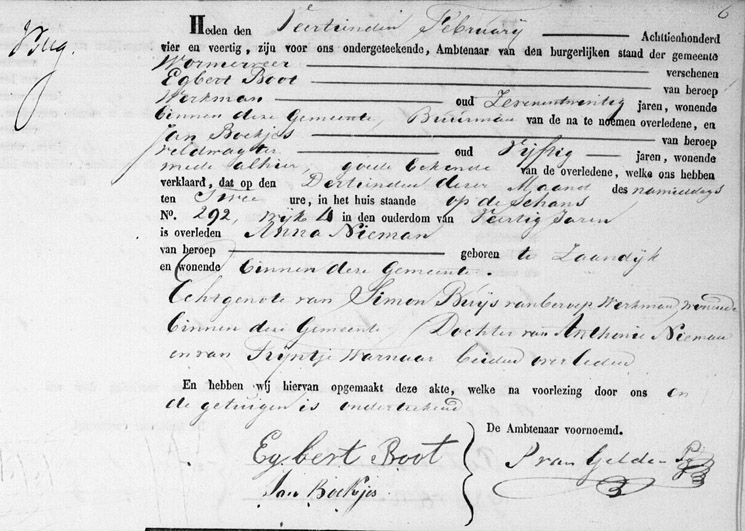 6
Heden den Veertienden Februarij Achttienhonderd
vier en veertig, zijn voor ons ondergeteekende, Ambtenaar van den burgerlijken stand der gemeente
Wormerveer verschenen
Egbert Boot van beroep
Werkman oud Zevenentwintig jaren, wonende
binnen dese Gemeente, Buurman van de na te noemen overledene, en
Jan Boekjes van beroep
veldwagter oud Vijftig jaren, wonende
mede alhier, goede bekende van de overledene, welke ons hebben
verklaard, dat op den Dertienden deser Maand des namiddags
ten Twee ure, in het huis staande op de Schans
No. 292, wijk 4 in den ouderdom van Veertig Jaren
is overleden Anna Nieman
van beroep geboren te Zaandijk
en wonende binnen dese Gemeente.
Echtgenote van Simon Buijs van beroep Werkman, wonende
binnen dese Gemeente, Dochter van Anthonie Nieman
en van Trijntje Warnaar beiden overleden
En hebben wij hiervan opgemaakt deze akte, welke na voorlezing door ons en
de getuigen is onderteekend
De Ambtenaar voornoemd.
Egbert Boot
P van Gelder
Jan Boekjes